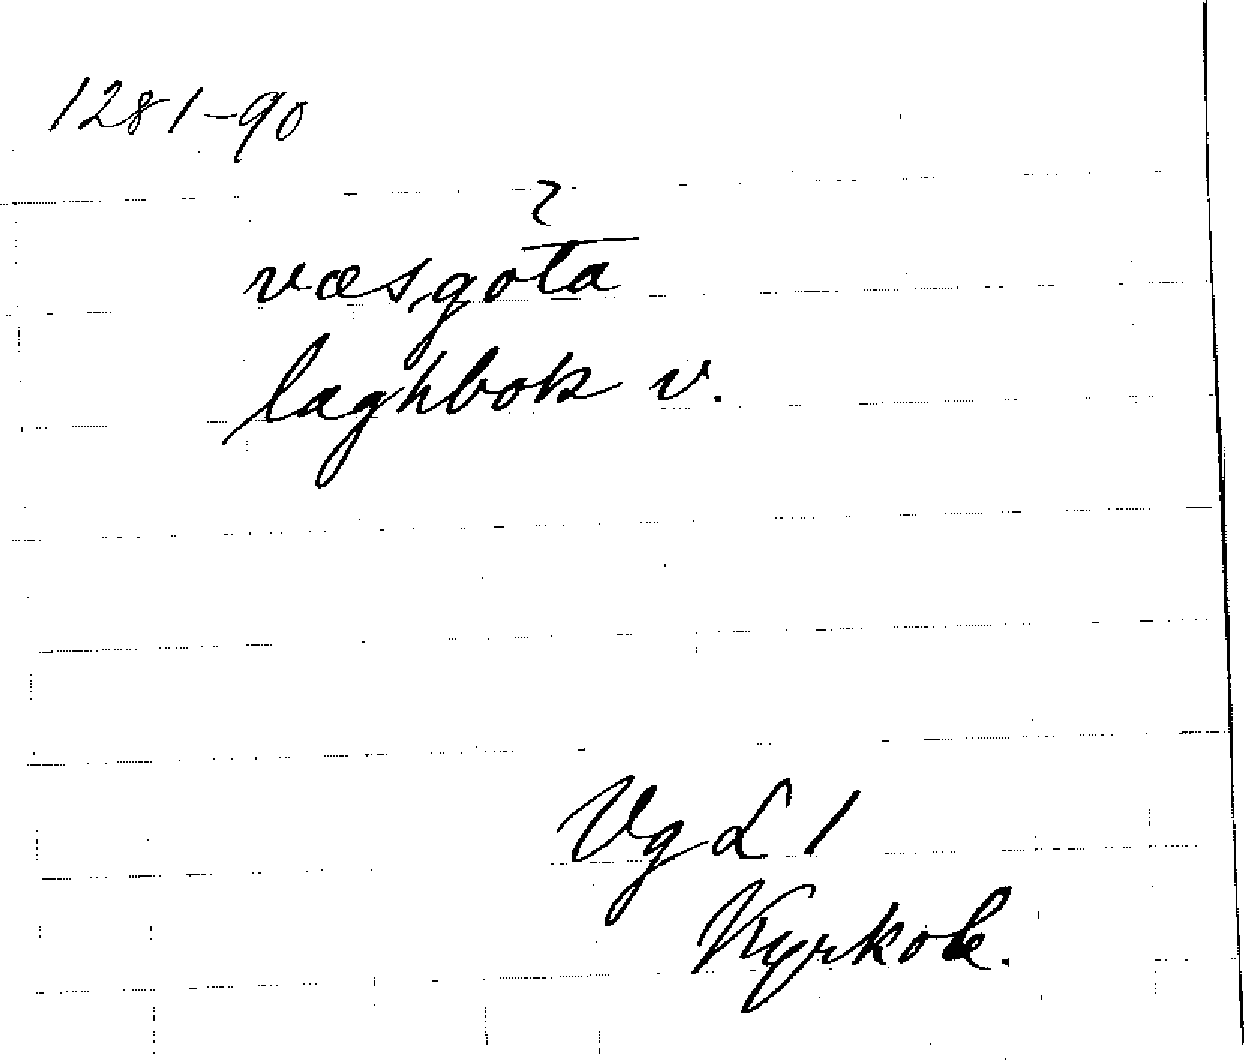 1281-90
væsgøta
laghbok v.
VgL 1
Kyrkob.